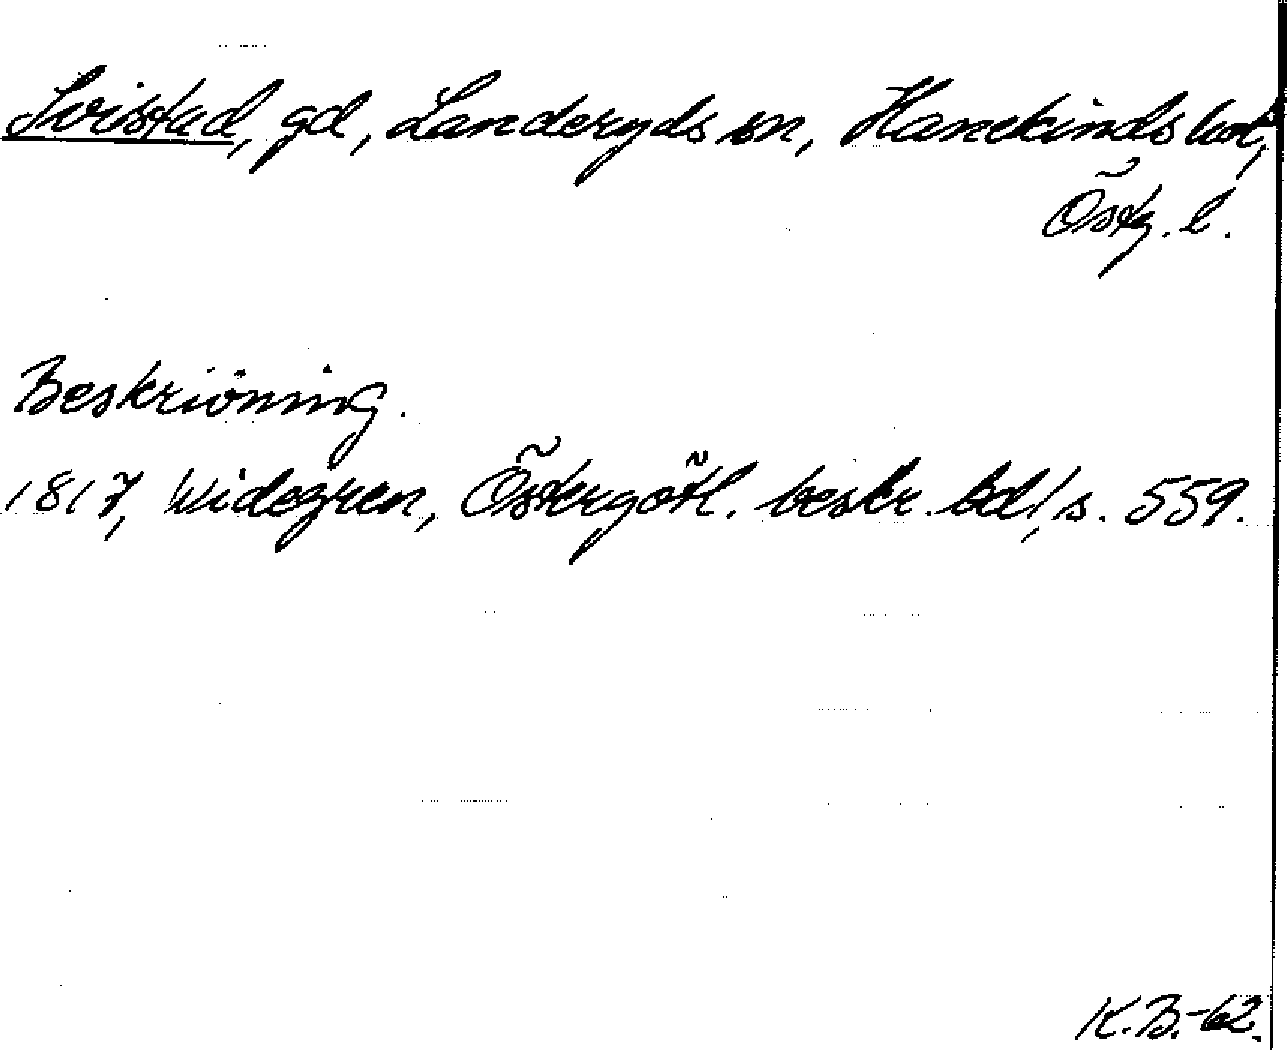 Svistad, gd, Landeryds sn, Hanekinds hd,
Östg. l.
Beskrivning.
1817, Widegren, Östergötl. beskr. bd 1, s. 559.
K.B.-62.